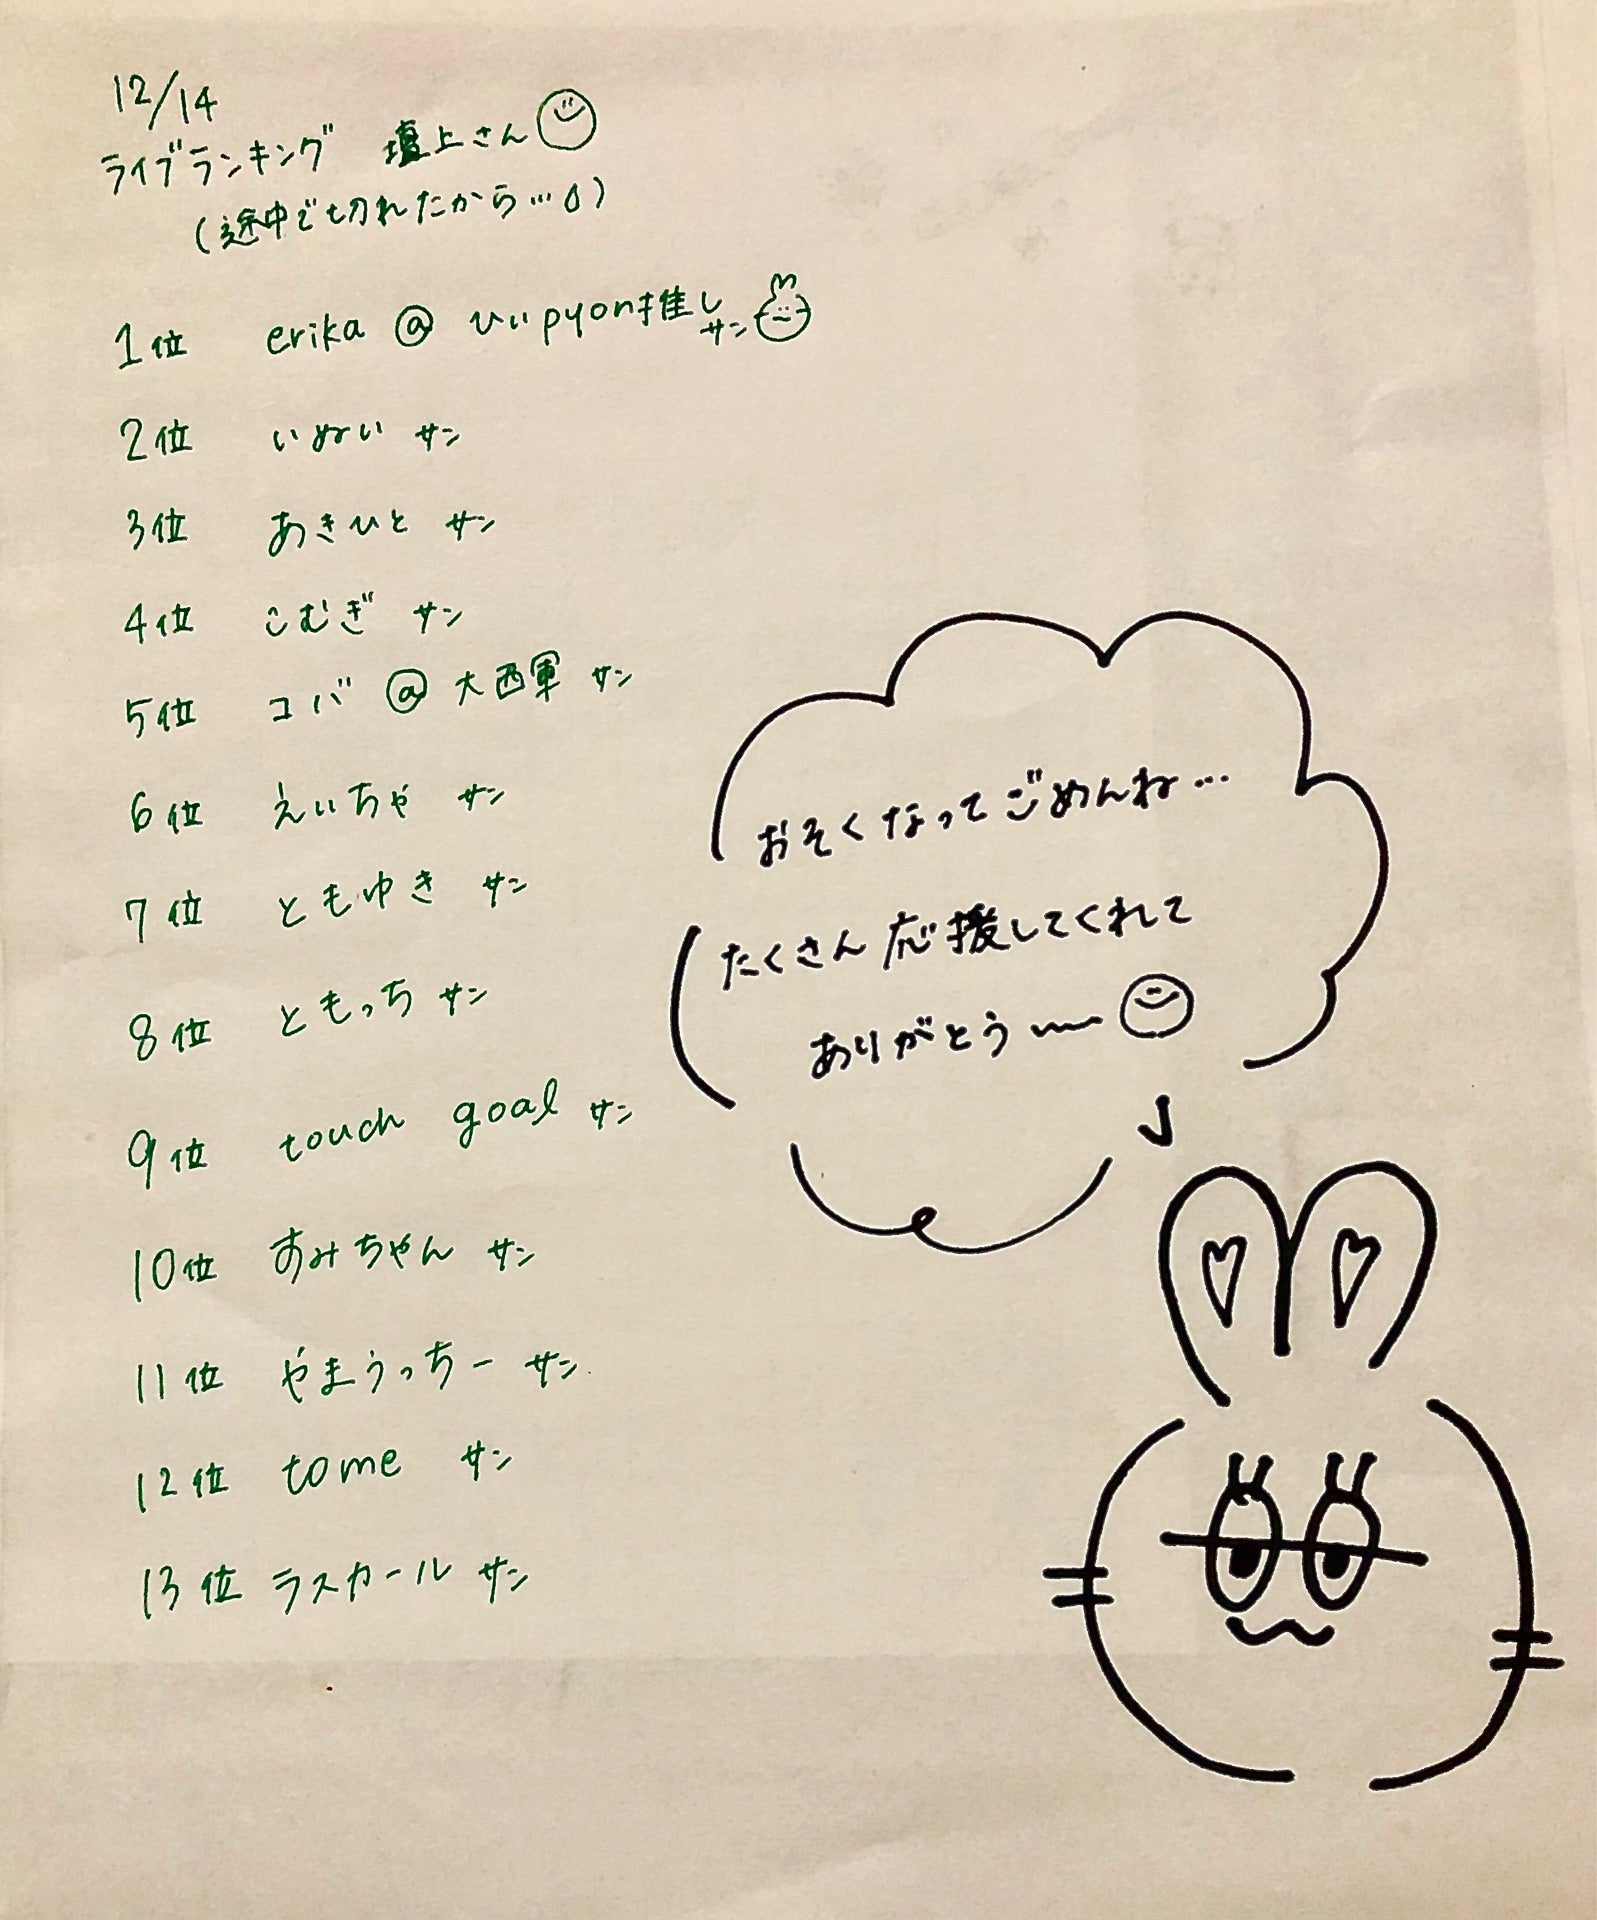 12/14
ライブランキング 壇上さん
(途中で切れたから…)
1位 erika @ ひぃpyon推し サン
2位 いぬい サン
3位 あきひと サン
4位 こむぎ サン
5位 コバ @ 大西軍 サン
6位 えいちゃ サン
7位 ともゆき サン
8位 ともっち サン
9位 touch goal サン
10位 すみちゃん サン
11位 やまうっちー サン
12位 tome サン
13位 ラスカール サン
おそくなってごめんね…
たくさん応援してくれて
ありがとう〜